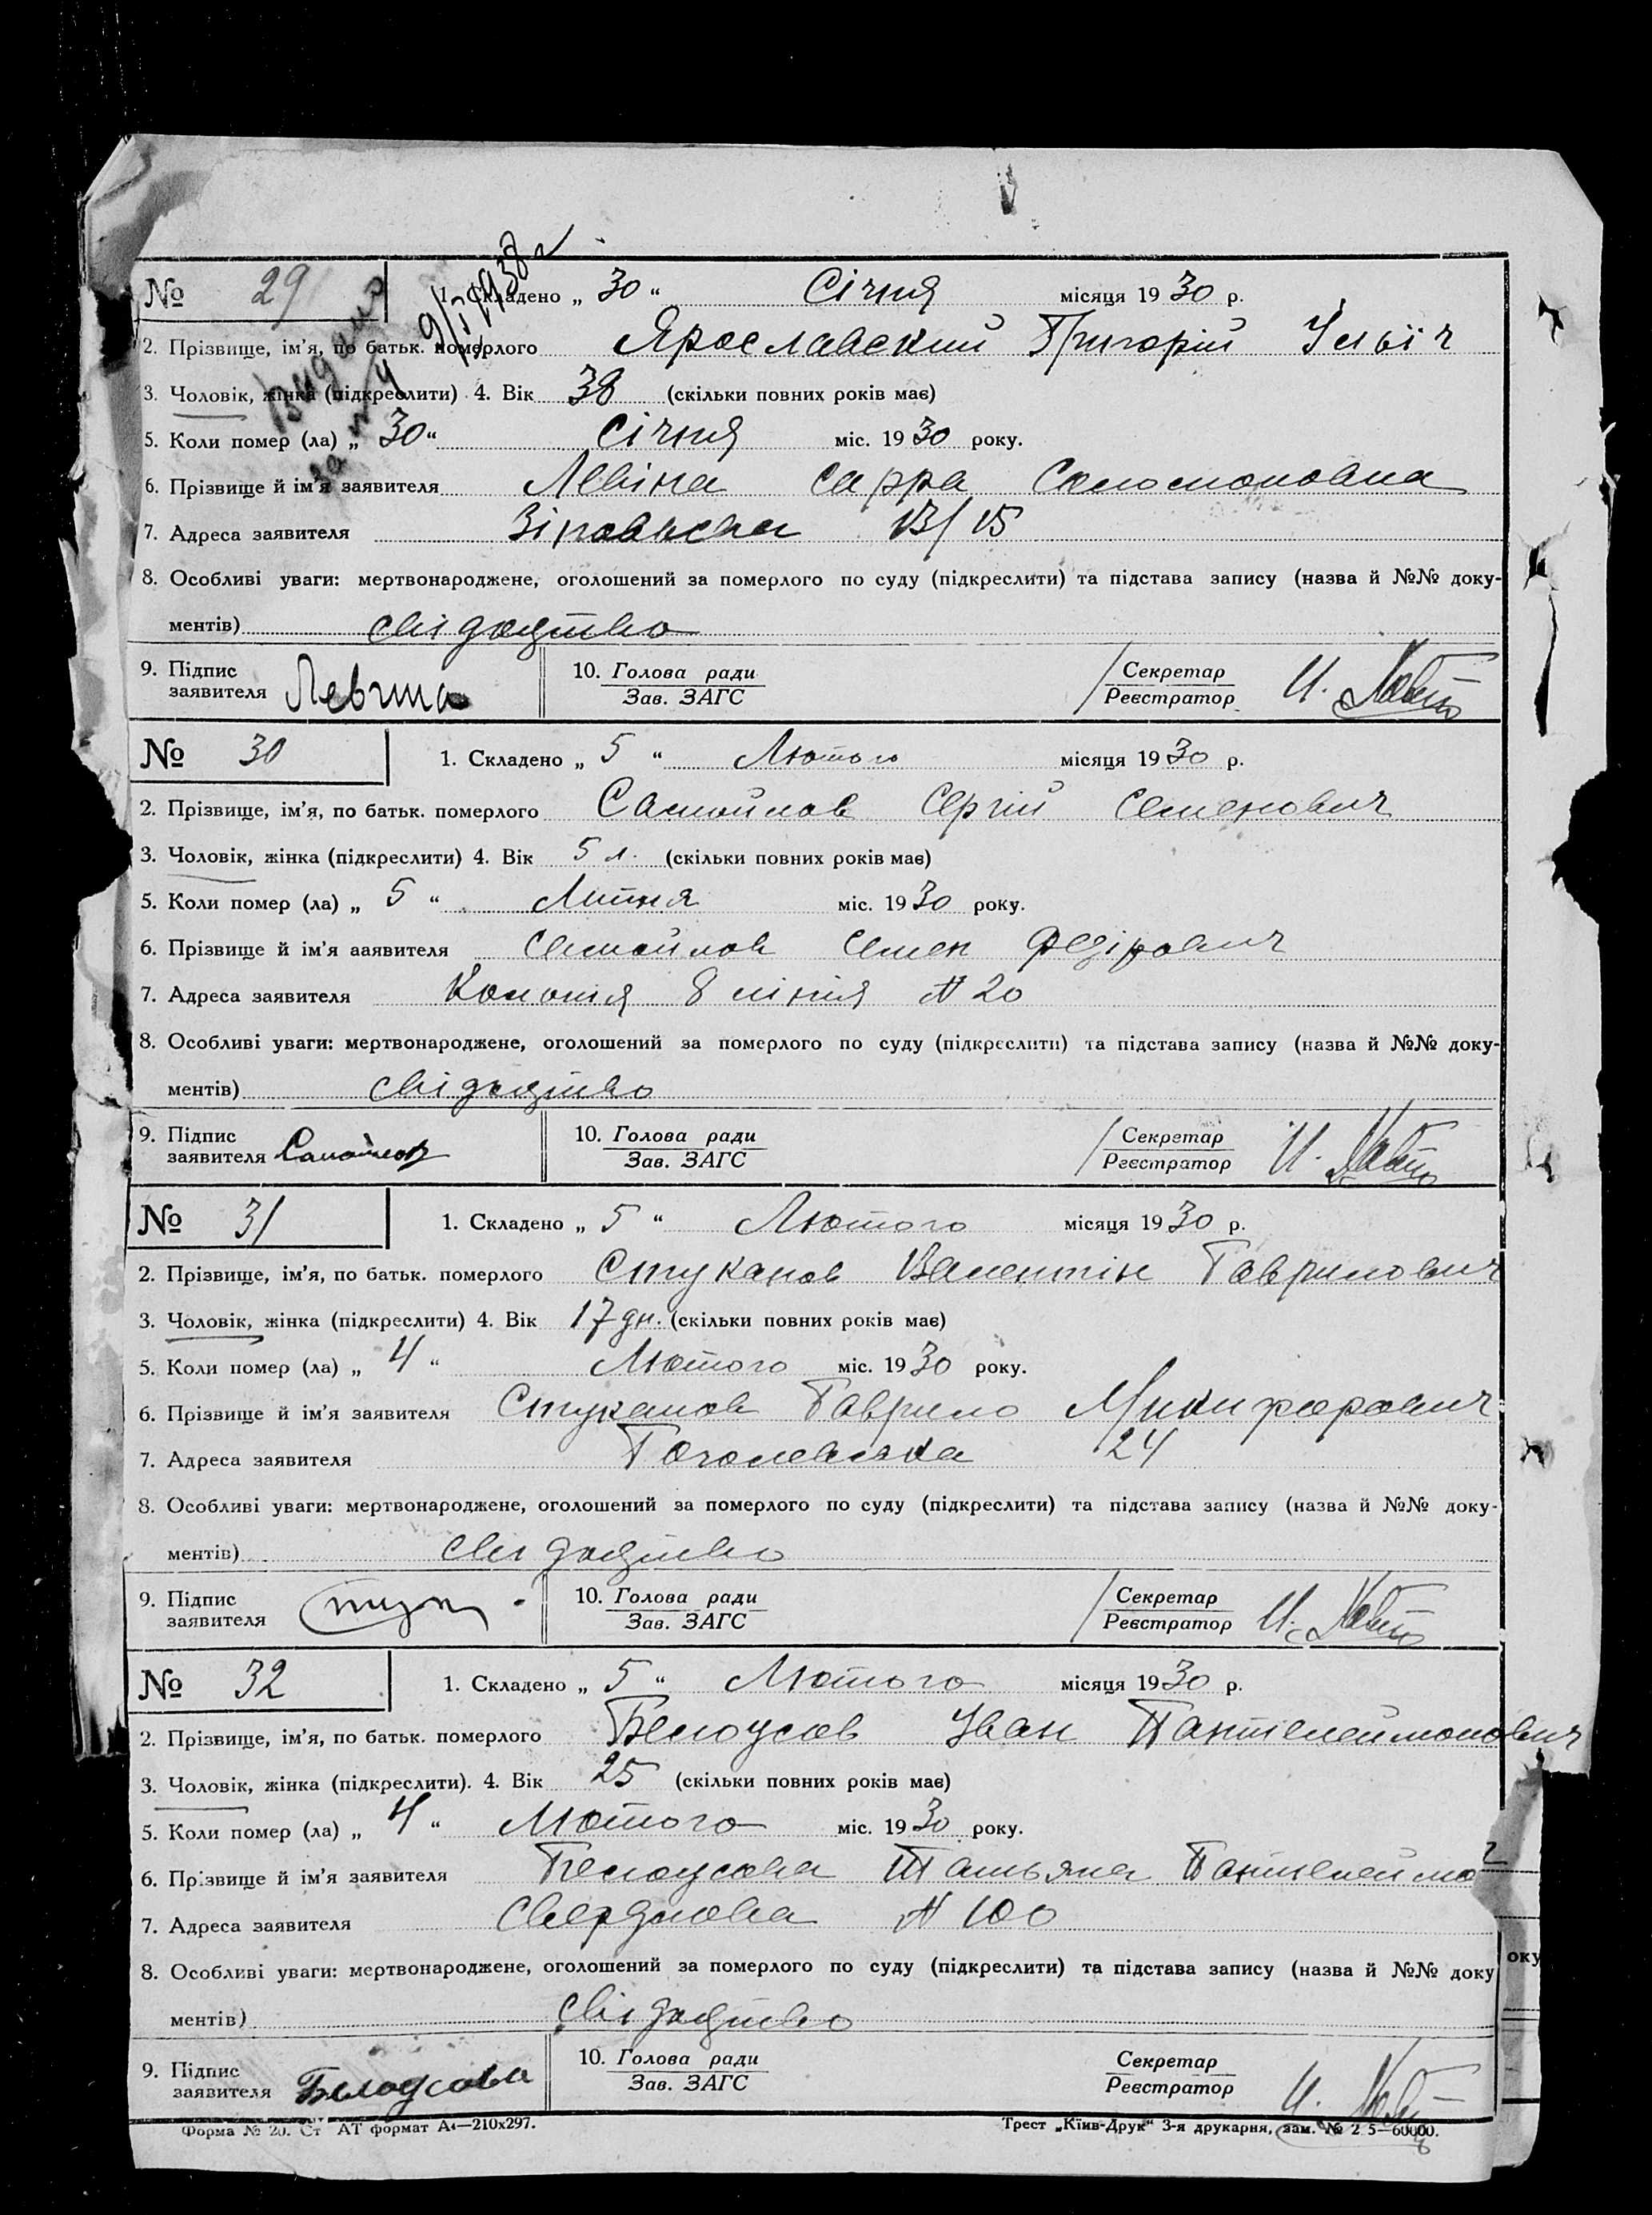 № 29 1. Складено „ 30 “ Січня місяця 1930 р.
Видано 9/I 1938 г
2. Прізвище, ім’я, по батьк. померлого Ярославский Григорій Ільїч
3. Чоловік, жінка (підкреслити) 4. Вік 38 (скільки повних років має)
5. Коли помер (ла) „ 30 “ Січня міс. 1930 року.
6. Прізвище й ім’я заявителя Левіна Сарра Соломоновна
7. Адреса заявителя 13/15
8. Особливі уваги: мертвонароджене, оголошений за померлого по суду (підкреслити) та підстава запису (назва й №№ доку-
ментів) свідодцтво
9. Підпис заявителя Левина 10. Голова ради Зав. ЗАГС Секретар Реєстратор И.
№ 30 1. Складено „ 5 “ Лютого місяця 1930 р.
2. Прізвище, ім’я, по батьк. померлого Самойлов Сергій Семенович
3. Чоловік, жінка (підкреслити) 4. Вік 5 л. (скільки повних років має)
5. Коли помер (ла) „ 5 “ міс. 1930 року.
6. Прізвище й ім’яааявителя Самойлов Семен Федірович
7. Адреса заявителя Колонія 8 лінія № 20
8. Особливі уваги: мертвонароджене, оголошений за померлого по суду (підкреслити) та підстава запису (назва й №№ доку-
ментів) свідодцтво
9. Підпис заявителя Самойлов 10. Голова ради Зав. ЗАГС Секретар Реєстратор И.
№ 31 1. Складено „ 5 “ Лютого місяця 1930 р.
2. Прізвище, ім’я, по батьк. померлого Стуканов Валентін Гаврилович
3. Чоловік, жінка (підкреслити) 4. Вік 17 дн. (скільки повних років має)
5. Коли помер (ла) „ 4 “ Лютого міс. 1930 року.
6. Прізвище й ім’я заявителя Стуканов Гаврило Микифорович
7. Адреса заявителя Гоголевська 24
8. Особливі уваги: мертвонароджене, оголошений за померлого по суду (підкреслити) та підстава запису (назва й №№ доку-
ментів) свідодцтво
9. Підпис заявителя 10. Голова ради Зав. ЗАГС Секретар Реєстратор И.
№ 32 1. Складено „ 5 “ Лютого місяця 1930 р.
2. Прізвище, ім’я, по батьк. померлого Белоусов Іван Пантелеймонович
3. Чоловік, жінка (підкреслити). 4. Вік 25 (скільки повних років має)
5. Коли помер (ла) „ 4 “ Лютого міс. 1930 року.
6. Прізвище й ім’я заявителя Белоусова Татьяна Пантелеймо
7. Адреса заявителя Свердлова № 100
8. Особливі уваги: мертвонароджене, оголошений за померлого по суду (підкреслити) та підстава запису (назва й №№ доку
ментів) свідодцтво
9. Підпис заявителя Белоусова 10. Голова ради Зав. ЗАГС Секретар Реєстратор И.
Форма № 20. Ст АТ формат А4—210х297. Трест „Київ-Друк“ 3-я друкарня, зам. № 2 5—60000.